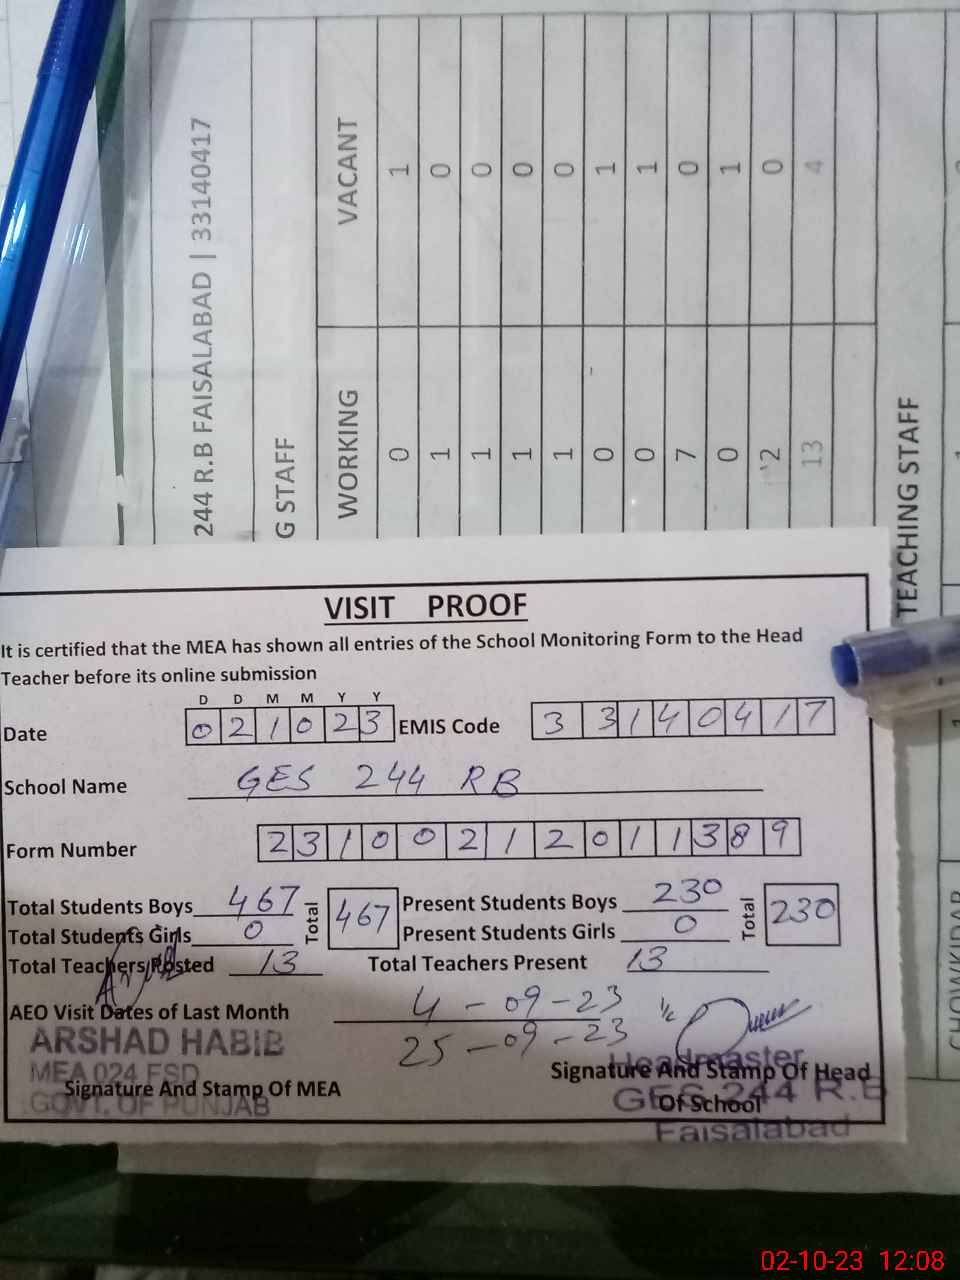 244 R.B FAISALABAD | 33140417
G STAFF
WORKING VACANT
0 1
1 0
1 0
1 0
1 0
0 1
0 1
7 0
0 1
2 0
13 4
TEACHING STAFF
CHOWKIDAR
VISIT PROOF
It is certified that the MEA has shown all entries of the School Monitoring Form to the Head
Teacher before its online submission
D D M M Y Y
Date 021023 EMIS Code 33140417
School Name GES 244 RB
Form Number 23100212011389
Total Students Boys 467 Total 467 Present Students Boys 230 Total 230
Total Students Girls 0 Present Students Girls 0
Total Teachers Posted 13 Total Teachers Present 13
AEO Visit Dates of Last Month 4-09-23
25-09-23
ARSHAD HABIB
MEA 024 FSD
GOVT. OF PUNJAB
Signature And Stamp Of MEA
Headmaster
Signature And Stamp Of Head
GES 244 R.B
Of School
Faisalabad
02-10-23 12:08